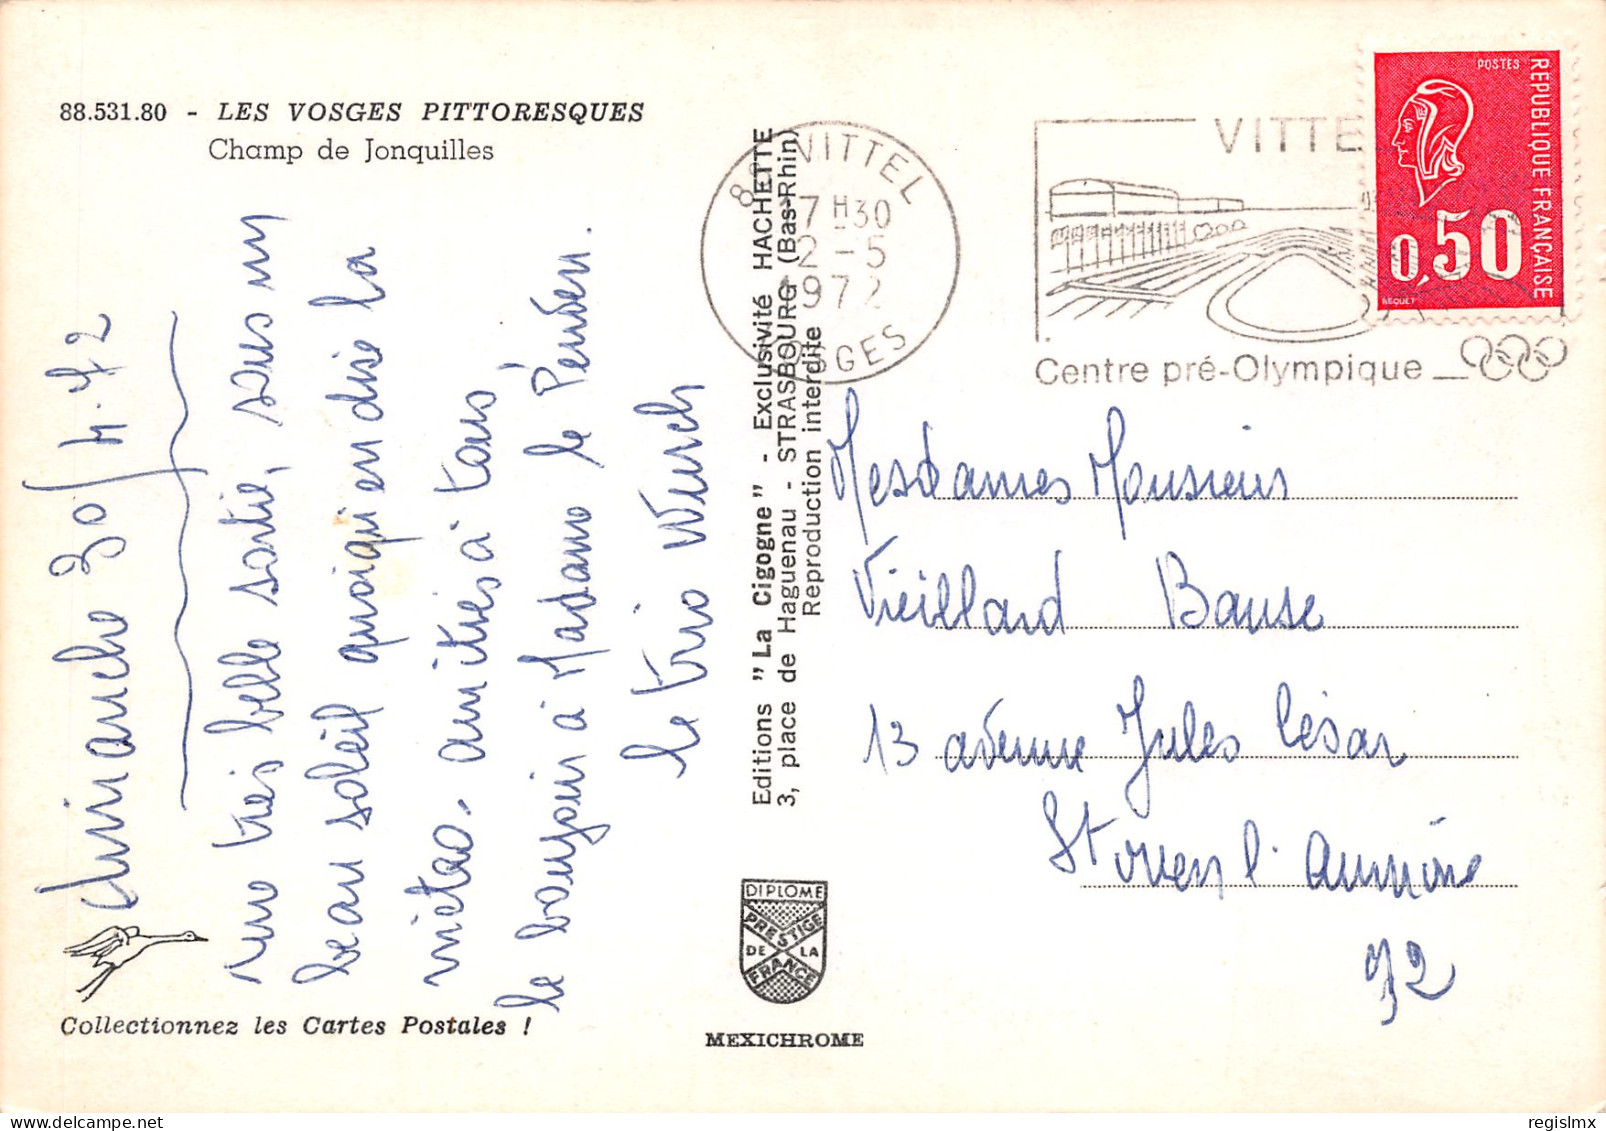 88.531.80 - LES VOSGES PITTORESQUES
Champ de Jonquilles
dimanche 30/4.72
une très belle sortie, sous un
beau soleil quoiqu'en dise la
météo. amitiés à tous
le bonjour à Madame le
le trio
Collectionnez les Cartes Postales !
Editions "La Cigogne" - Exclusivité HACHETTE
3, place de Haguenau - STRASBOURG (Bas-Rhin)
Reproduction interdite
DIPLOME
PRESTIGE
DE LA
FRANCE
MEXICHROME
88 VITTEL
17 H 30
2 - 5
1972
VOSGES
VITTE
Centre pré-Olympique
POSTES
REPUBLIQUE FRANÇAISE
0,50
BEQUET
Mesdames Monsieur
Vieillard Bause
13 avenue Jules César
St ouen l'aumône
92
regislmx
delcampe.net